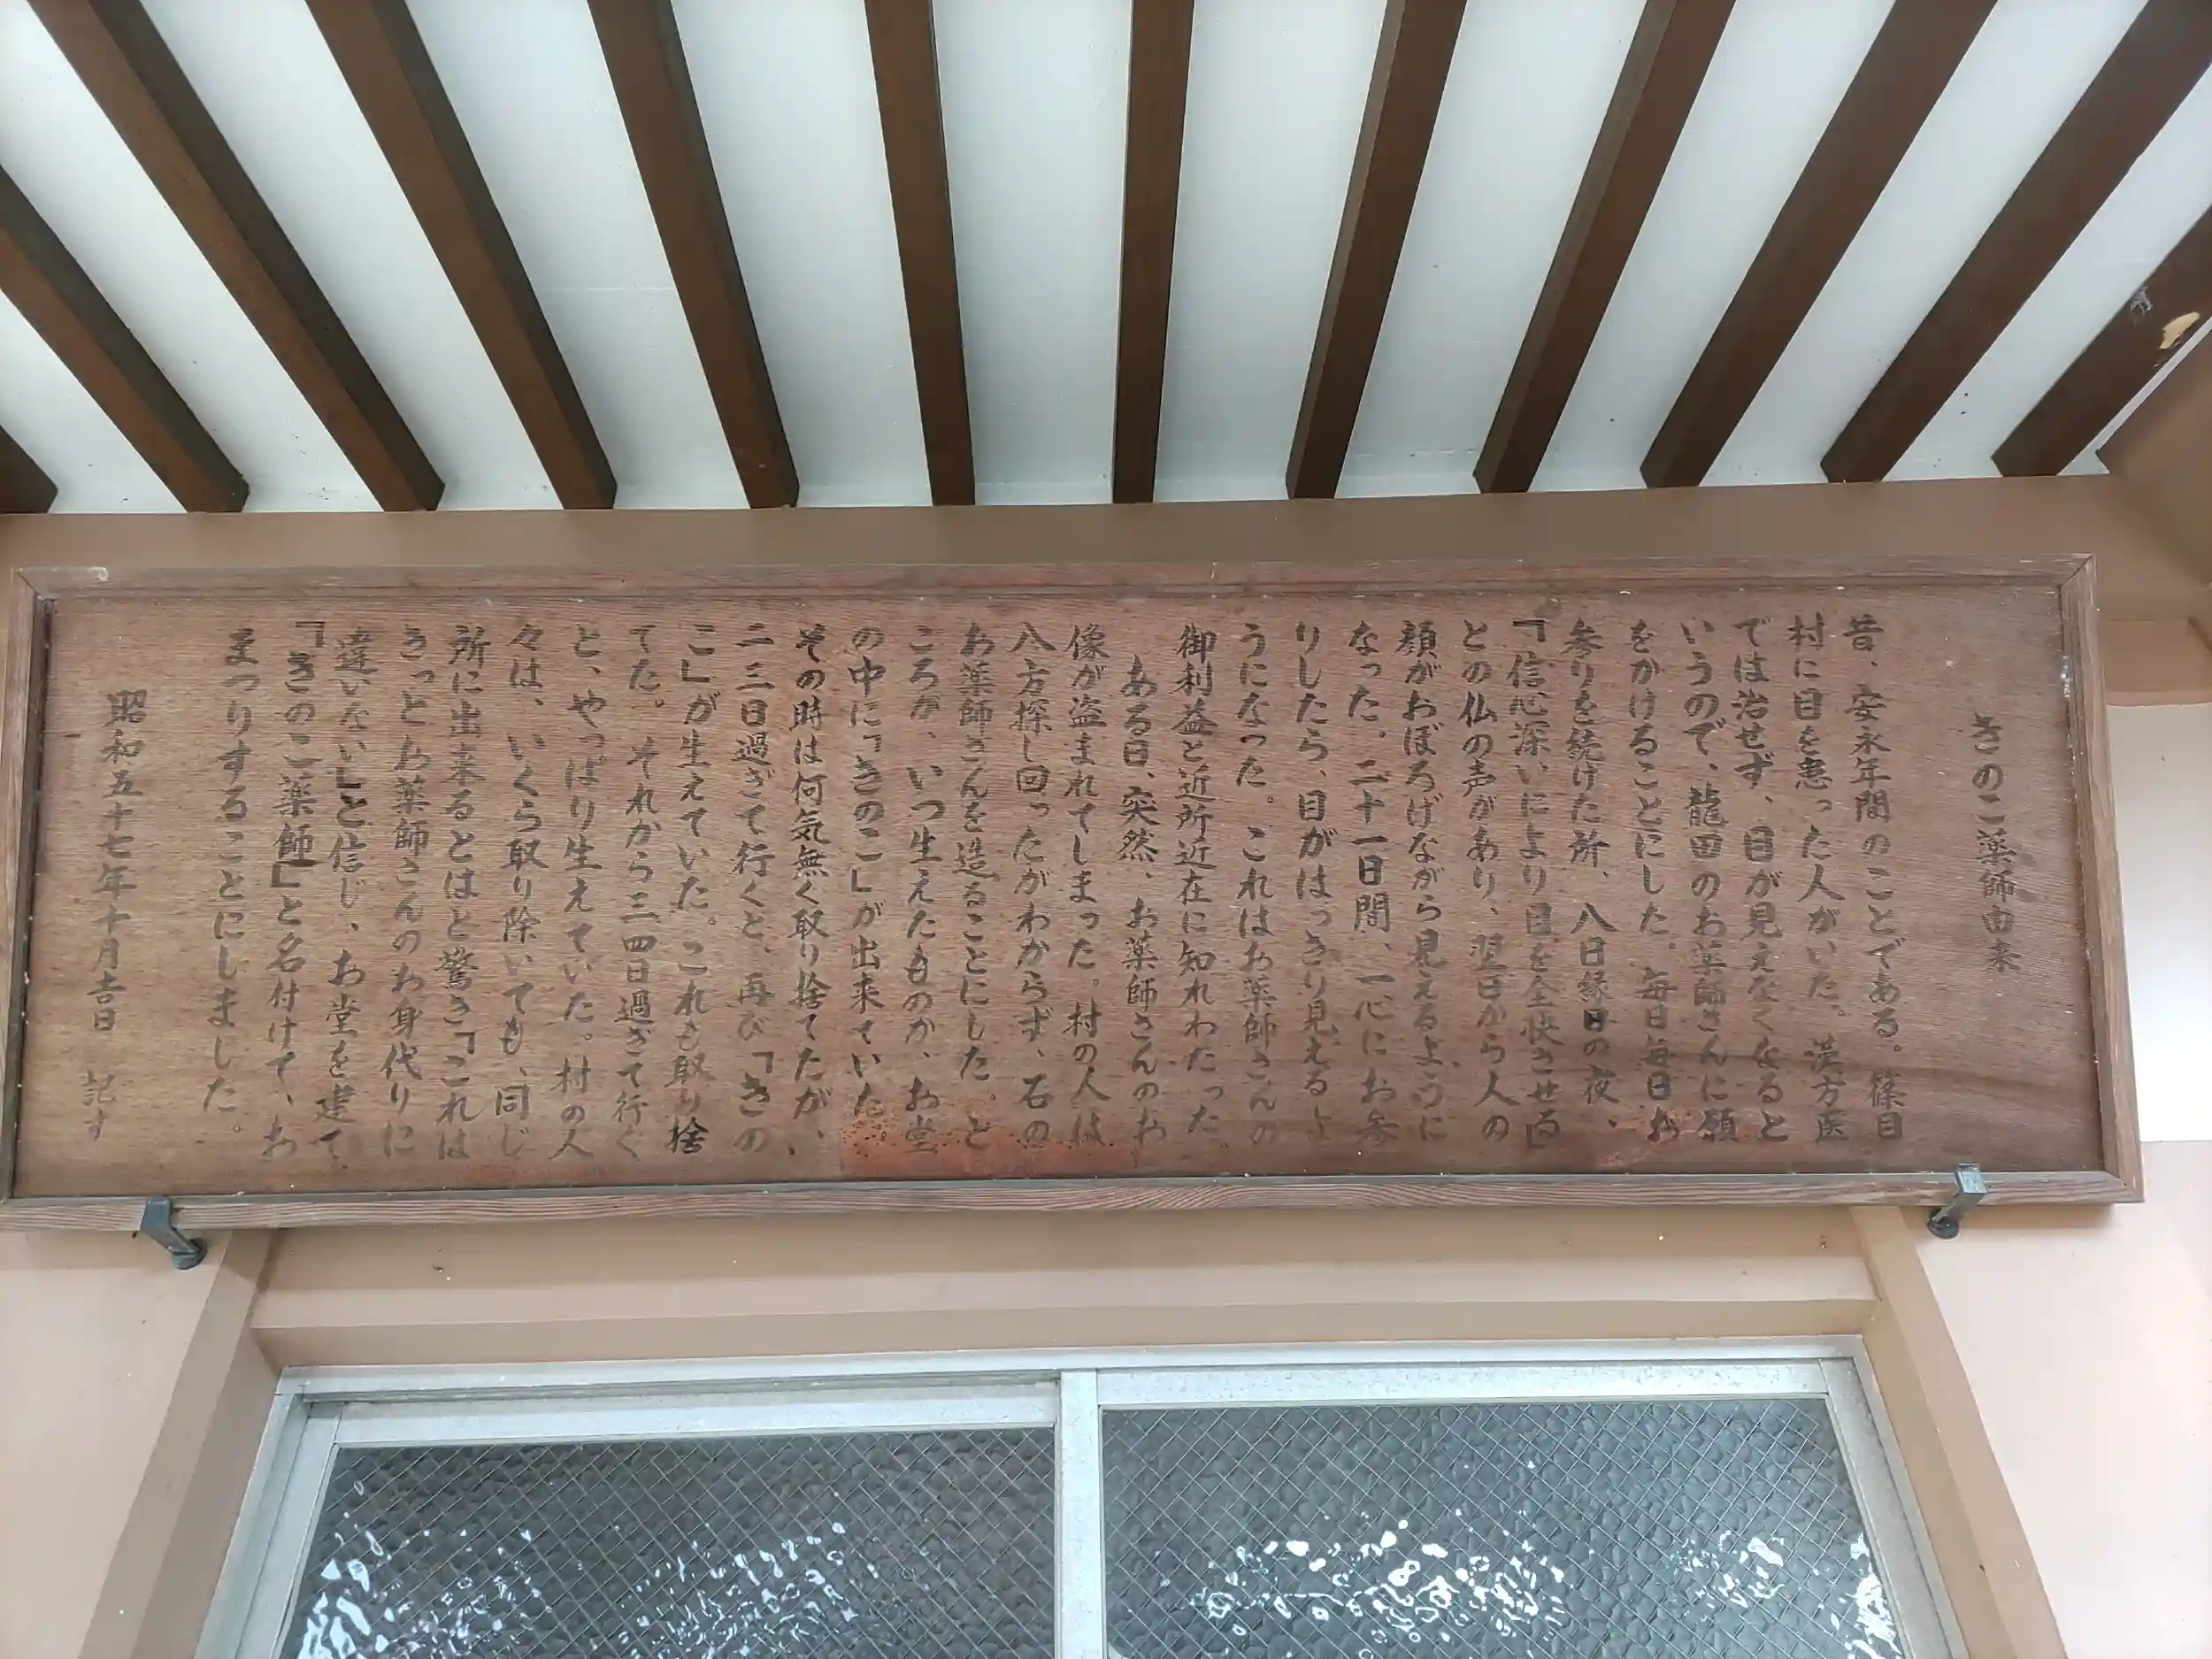 きのこ薬師由来
昔、安永年間のことである。篠目
村に目を患った人がいた。漢方医
では治せず、目が見えなくなると
いうので、龍田のお薬師さんに願
をかけることにした。毎日毎日お
参りを続けた所、八日縁日の夜、
「信心深いにより目を全快させる」
との仏の声があり、翌日から人の
顔がおぼろげながら見えるように
なった。二十一日間、一心にお参
りしたら、目がはっきり見えるよ
うになった。これはお薬師さんの
御利益と近所近在に知れわたった。
ある日、突然、お薬師さんのお
像が盗まれてしまった。村の人は
八方探し回ったがわからず、石の
お薬師さんを造ることにした。と
ころが、いつ生えたものか、お堂
の中に「きのこ」が出来ていた。
その時は何気無く取り捨てたが、
二三日過ぎて行くと、再び「きの
こ」が生えていた。これも取り捨
てた。それから三四日過ぎて行く
と、やっぱり生えていた。村の人
々は、いくら取り除いても、同じ
所に出来るとはと驚き「これは
きっとお薬師さんのお身代りに
違いない」と信じ、お堂を建て、
「きのこ薬師」と名付けて、お
まつりすることにしました。
昭和五十七年十月吉日　記す